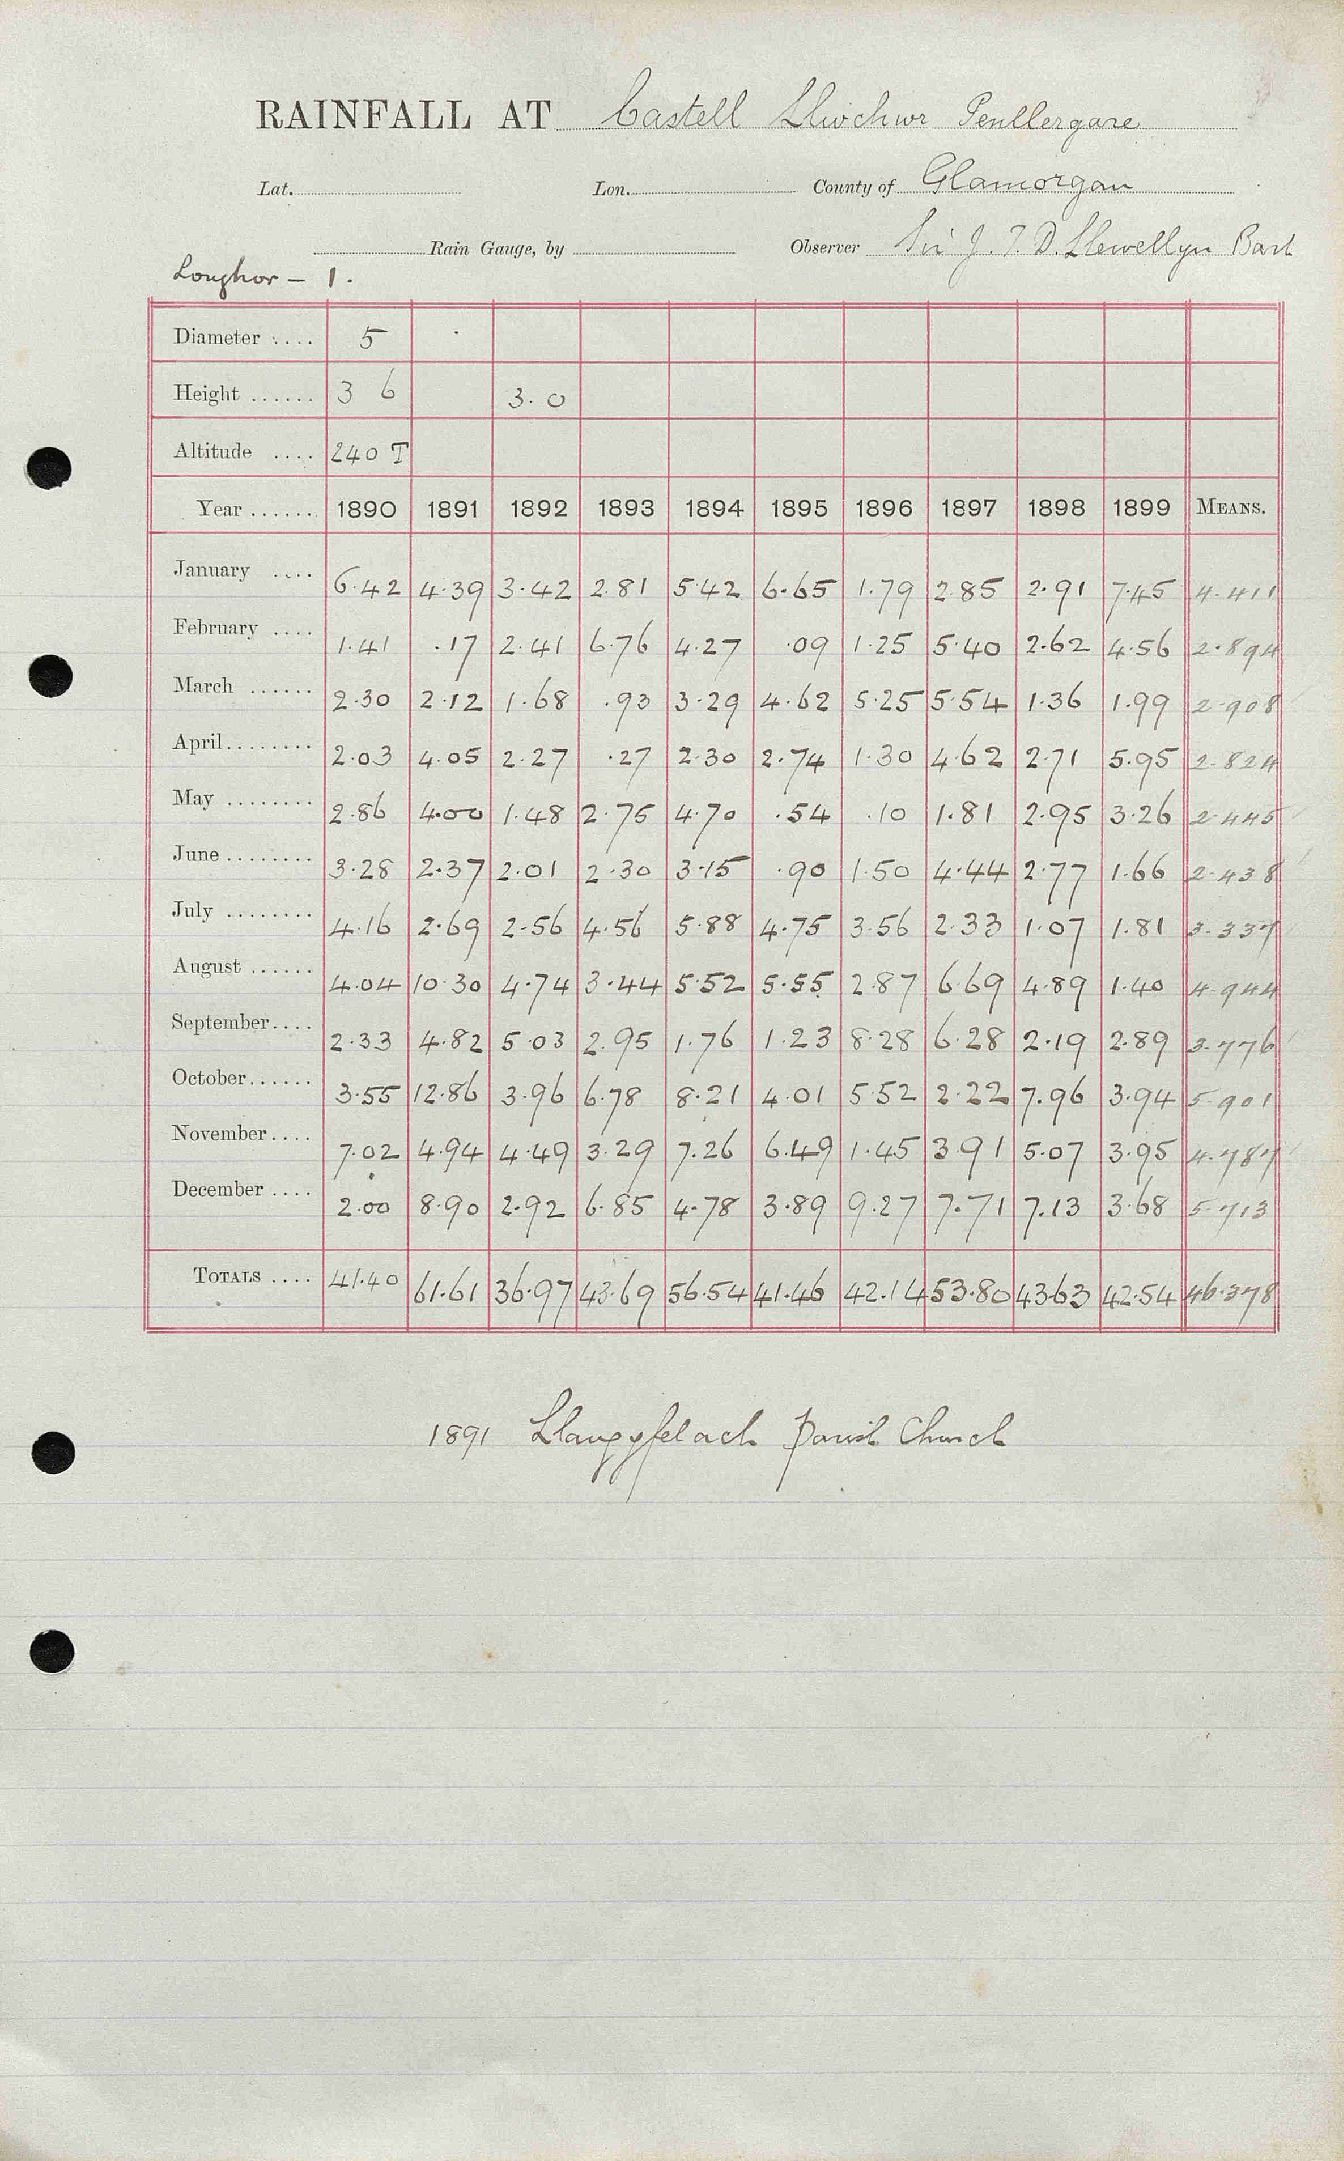 RAINFALL AT Castell Llwchwr Penllergare
Lat. Lon. County of Glamorgan
Rain Gauge, by Observer Sir J. T. D. Llewellyn Bart
Loughor – 1.
Diameter .... 5
Height ...... 3 6 3.0
Altitude .... 240 T
Year ...... 1890 1891 1892 1893 1894 1895 1896 1897 1898 1899 MEANS.
January .... 6.42 4.39 3.42 2.81 5.42 6.65 1.79 2.85 2.91 7.45 4.411
February .... 1.41 .17 2.41 6.76 4.27 .09 1.25 5.40 2.62 4.56 2.894
March ...... 2.30 2.12 1.68 .93 3.29 4.62 5.25 5.54 1.36 1.99 2.908
April........ 2.03 4.05 2.27 .27 2.30 2.74 1.30 4.62 2.71 5.95 2.824
May ........ 2.86 4.00 1.48 2.75 4.70 .54 .10 1.81 2.95 3.26 2.445
June ........ 3.28 2.37 2.01 2.30 3.15 .90 1.50 4.44 2.77 1.66 2.438
July ........ 4.16 2.69 2.56 4.56 5.88 4.75 3.56 2.33 1.07 1.81 3.337
August ...... 4.04 10.30 4.74 3.44 5.52 5.55 2.87 6.69 4.89 1.40 4.944
September.... 2.33 4.82 5.03 2.95 1.76 1.23 8.28 6.28 2.19 2.89 3.776
October...... 3.55 12.86 3.96 6.78 8.21 4.01 5.52 2.22 7.96 3.94 5.901
November.... 7.02 4.94 4.49 3.29 7.26 6.49 1.45 3.91 5.07 3.95 4.787
December .... 2.00 8.90 2.92 6.85 4.78 3.89 9.27 7.71 7.13 3.68 5.713
TOTALS .... 41.40 61.61 36.97 43.69 56.54 41.46 42.14 53.80 43.63 42.54 46.378
1891 Llangyfelach Parish Church